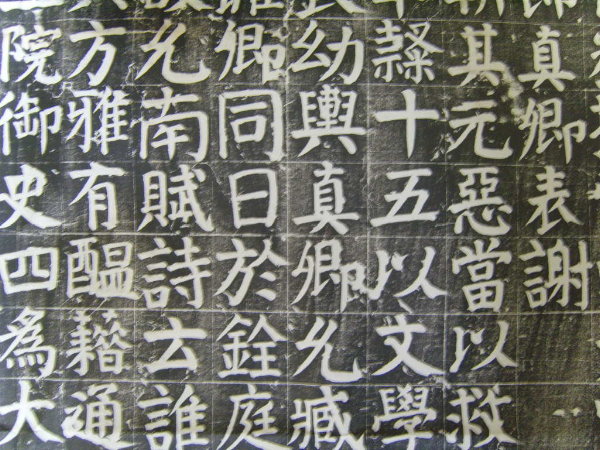 真卿表謝
其元惡當以救
隸十五以文學
幼輿真卿允臧
卿同日於銓庭
允南賦詩云誰
方雅有醞藉通
院御史四為大